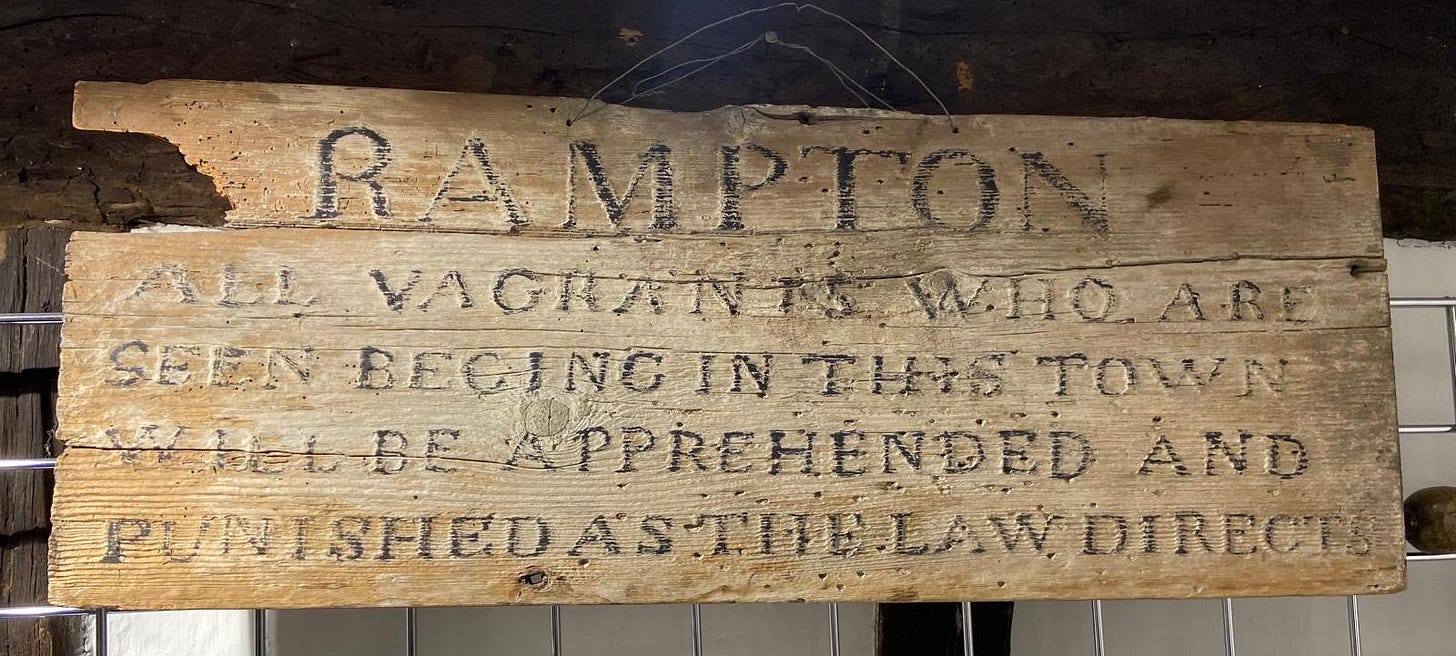 RAMPTON
ALL VAGRANTS WHO ARE
SEEN BEGING IN THIS TOWN
WILL BE APPREHENDED AND
PUNISHED AS THE LAW DIRECTS